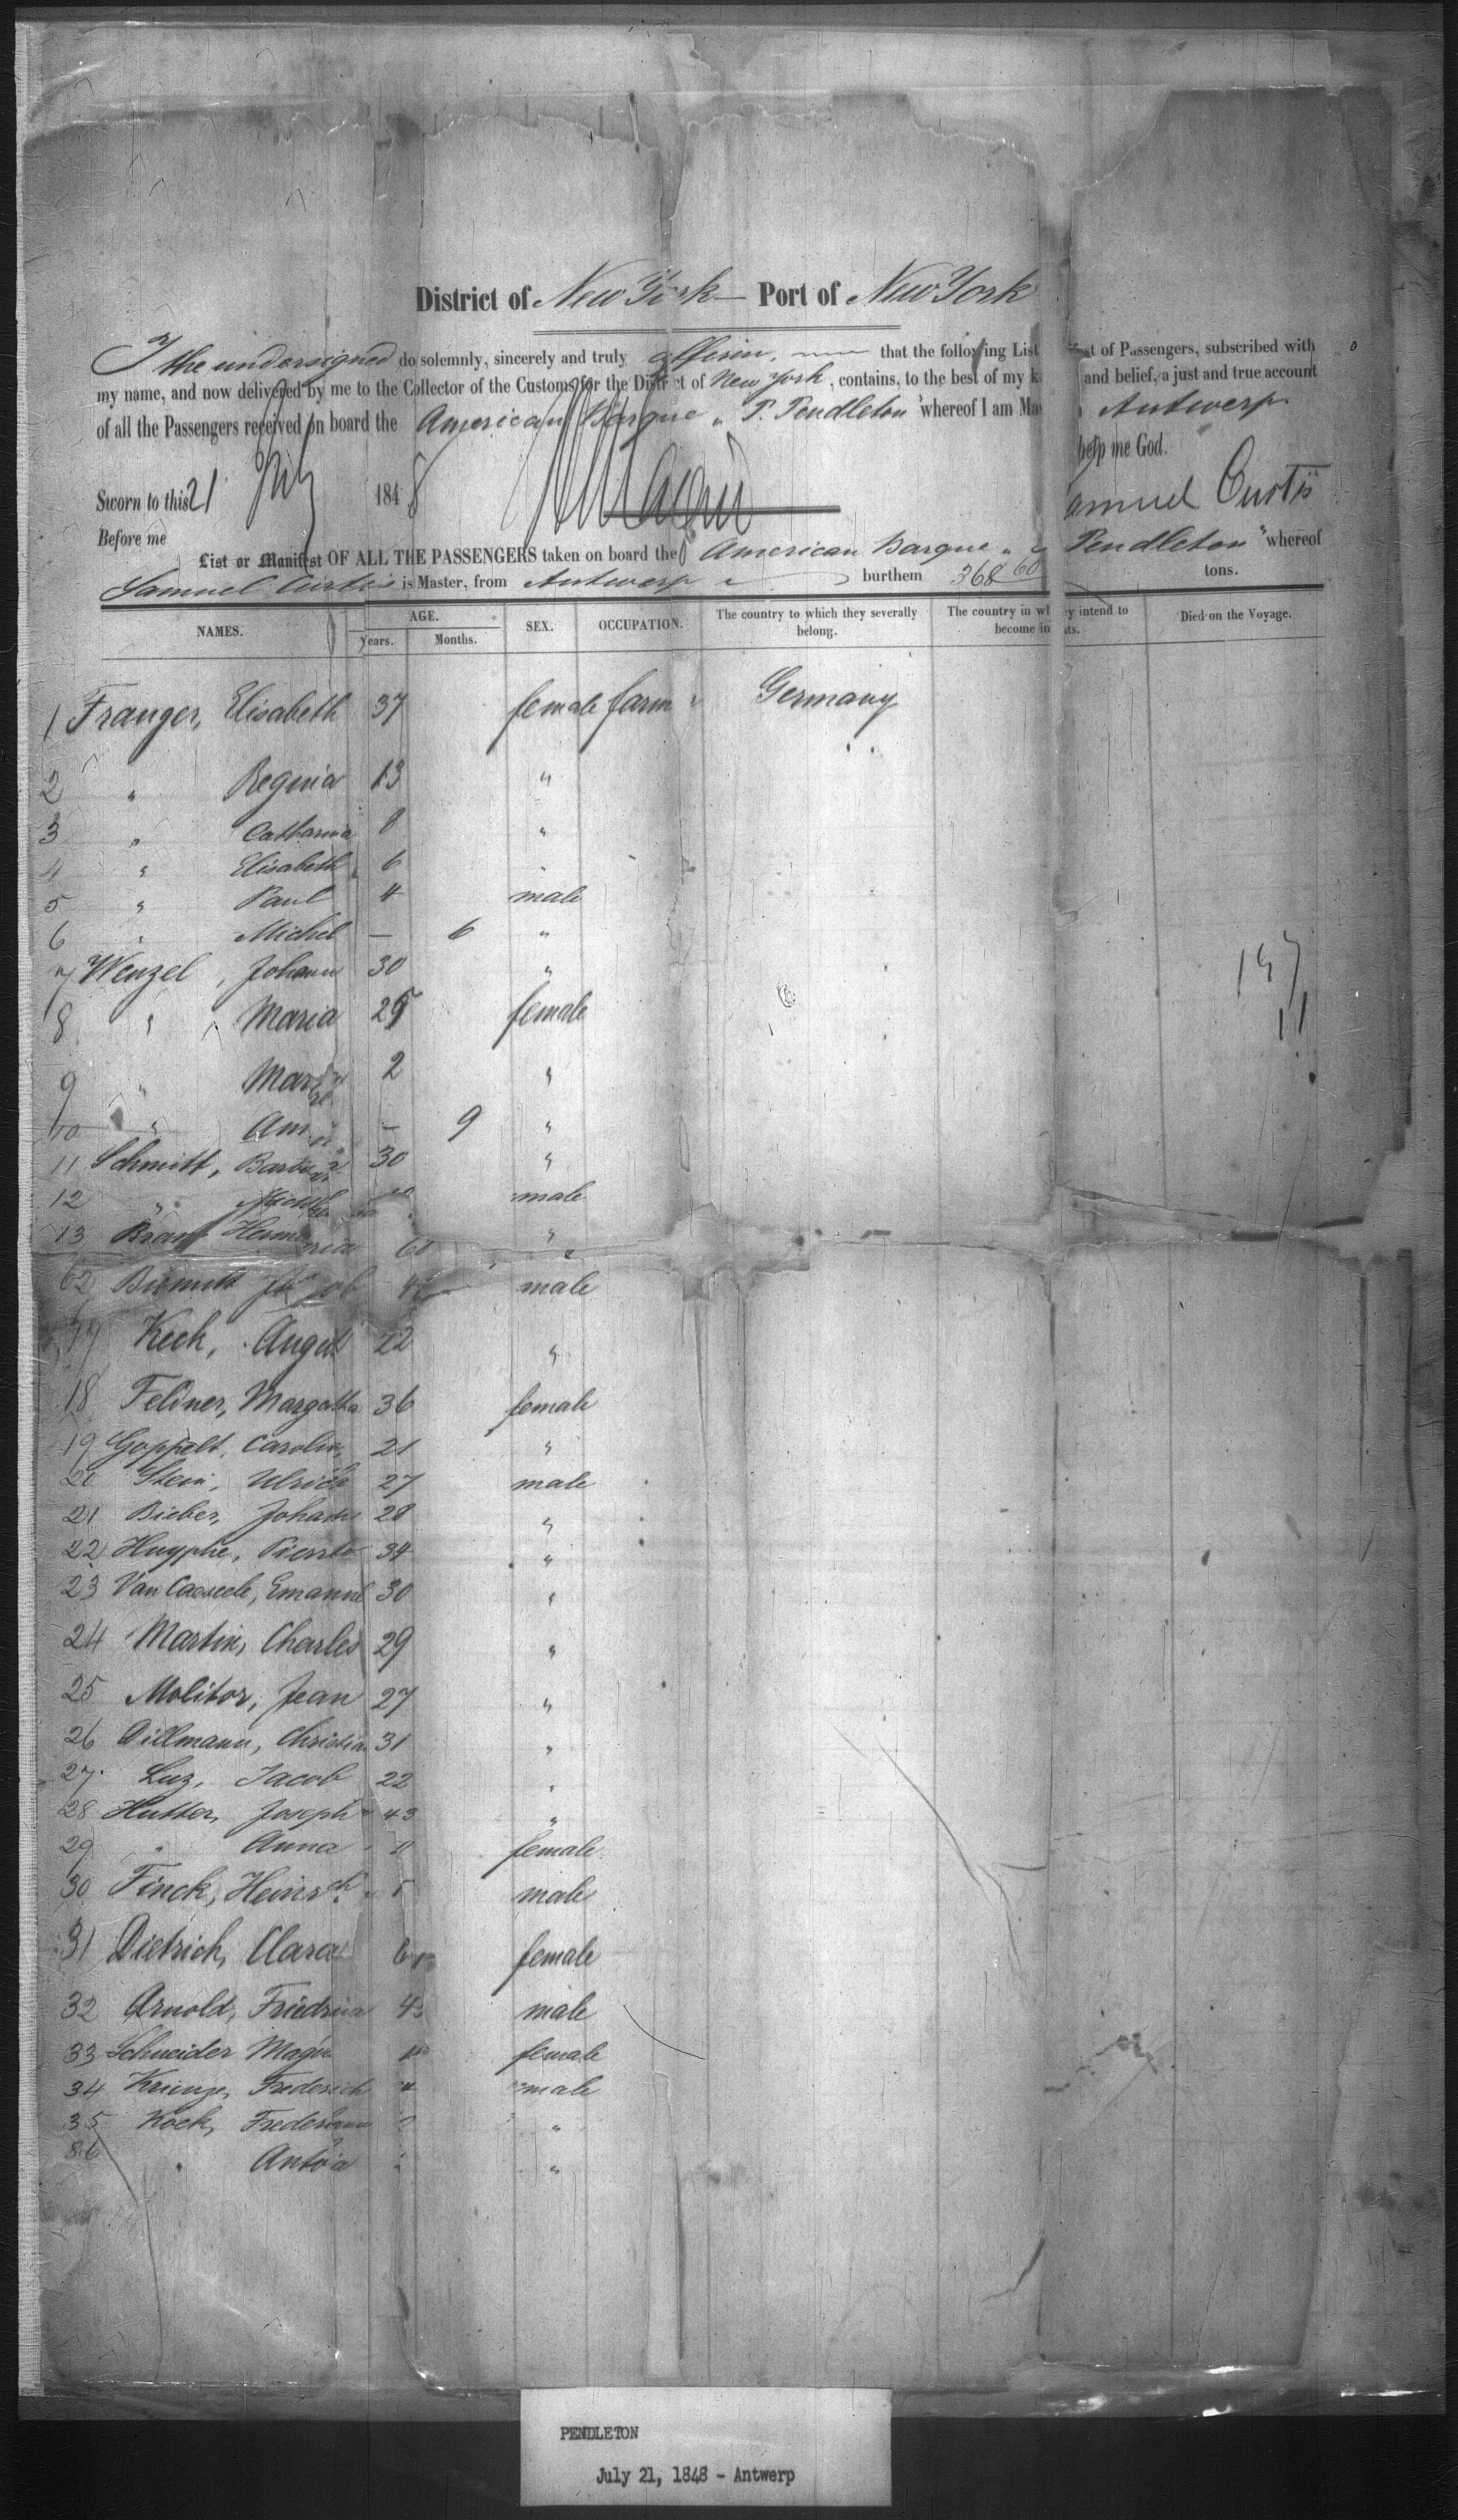 District of New York — Port of New York
I the undersigned do solemnly, sincerely and truly affirm, that the following List of Passengers, subscribed with
my name, and now delivered by me to the Collector of the Customs for the District of New York, contains, to the best of my and belief, a just and true account
of all the Passengers received on board the American Barque „ P. Pendleton" whereof I am Antwerp
help me God.
Sworn to this 21 July 1848
Samuel Curtis
Before me
List or Manifest OF ALL THE PASSENGERS taken on board the American Barque „ Pendleton" whereof
Samuel Curtis is Master, from Antwerp burthem 368 60 tons.
NAMES. AGE. Years. Months. SEX. OCCUPATION. The country to which they severally belong. The country in intend to become Died on the Voyage.
1 Franger, Elisabeth 37 female farm Germany
2 " Regina 13 "
3 " Catharina 8 "
4 " Elisabeth 6
5 " Paul 4 male
6 " Michel — 6 "
7 Wenzel, Johann 30 "
8 " Maria 25 female
9 " 2 "
10 " — 9 "
11 Schmitt, 30 "
12 " male
13 "
60 "
62 male
17 Keck, August 22 "
18 Feldner, Margatha 36 female
19 Goppelt, Carolin 21 "
20 Stein, Ulrich 27 male
21 Bieber, Johann 28 "
22 Huyphe, 34 "
23 Van Emanuel 30 "
24 Martin, Charles 29 "
25 Molitor, Jean 27 "
26 Dillmann, Christian 31 "
27 Luz, Jacob 22 "
28 Hutter, Joseph 43 "
29 " Anna female
30 Finck, Heinrch male
31 Dietrich, Clara female
32 Arnold, male
33 Schneider female
34 Frederich male
35 Kock, "
36 " "
PENDLETON
July 21, 1848 - Antwerp